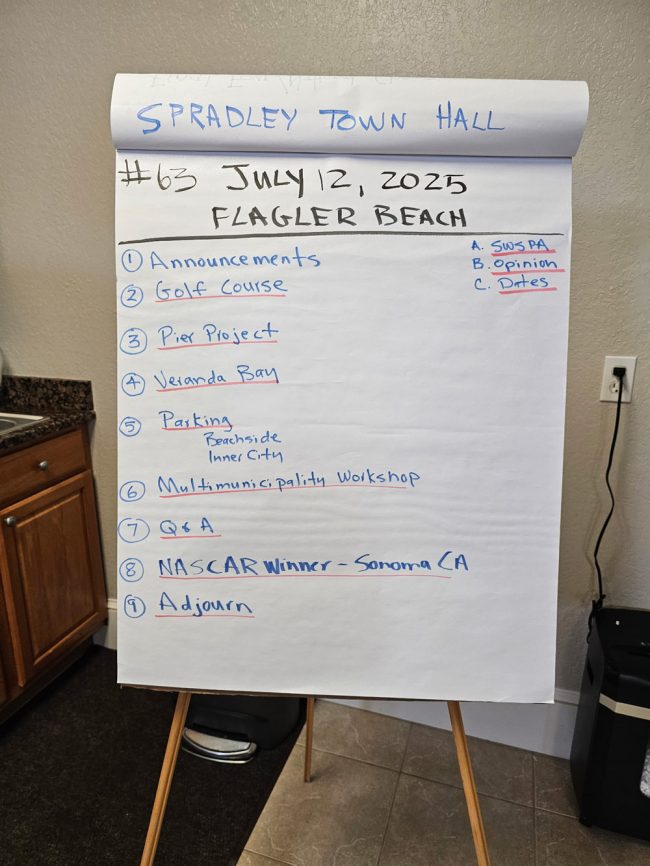 SPRADLEY TOWN HALL
#63 JULY 12, 2025
FLAGLER BEACH
① Announcements
A. SWSPA
B. Opinion
C. Dates
② Golf Course
③ Pier Project
④ Veranda Bay
⑤ Parking
Beachside
Inner City
⑥ Multimunicipality Workshop
⑦ Q & A
⑧ NASCAR Winner - Sonoma CA
⑨ Adjourn